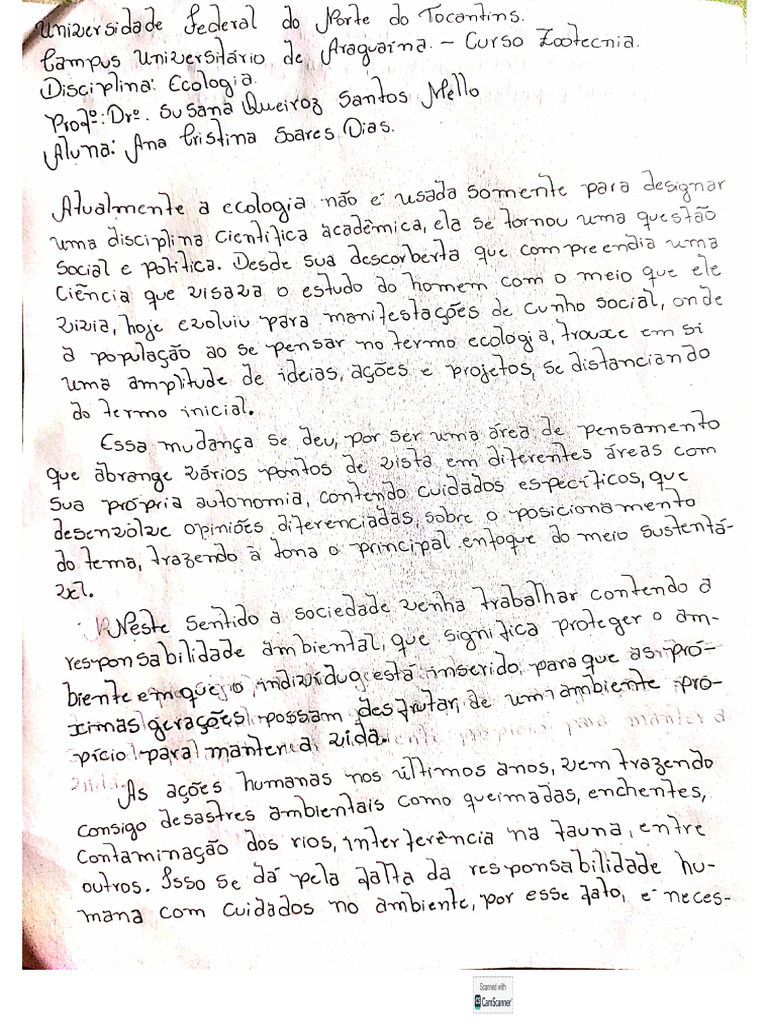 Universidade Federal do Norte do Tocantins.
Campus Universitário de Araguaína. - Curso Zootecnia.
Disciplina: Ecologia.
Profº: Drº. Susana Queiroz Santos Mello
Aluna: Ana Cristina Soares Dias.
Atualmente a ecologia não é usada somente para designar
uma disciplina científica acadêmica, ela se tornou uma questão
social e política. Desde sua descorberta que compreendia uma
ciência que visava o estudo do homem com o meio que ele
vivia, hoje evoluiu para manifestações de cunho social, onde
a população ao se pensar no termo ecologia, trouxe em si
uma amplitude de ideias, ações e projetos, se distanciando
do termo inicial.
Essa mudança se deu, por ser uma área de pensamento
que abrange vários pontos de vista em diferentes áreas com
sua própria autonomia, contendo cuidados específicos, que
desenvolve opiniões diferenciadas, sobre o posicionamento
do tema, trazendo à tona o principal enfoque do meio sustentá-
vel.
Neste sentido a sociedade venha trabalhar contendo a
responsabilidade ambiental, que significa proteger o am-
biente em que o indivíduo está inserido, para que as pró-
ximas gerações possam desfrutar de um ambiente pro-
pício para manter a vida.
As ações humanas nos últimos anos, vem trazendo
consigo desastres ambientais como queimadas, enchentes,
contaminação dos rios, interferência na fauna, entre
outros. Isso se dá pela falta da responsabilidade hu-
mana com cuidados no ambiente, por esse fato, é neces-
Scanned with
CS CamScanner